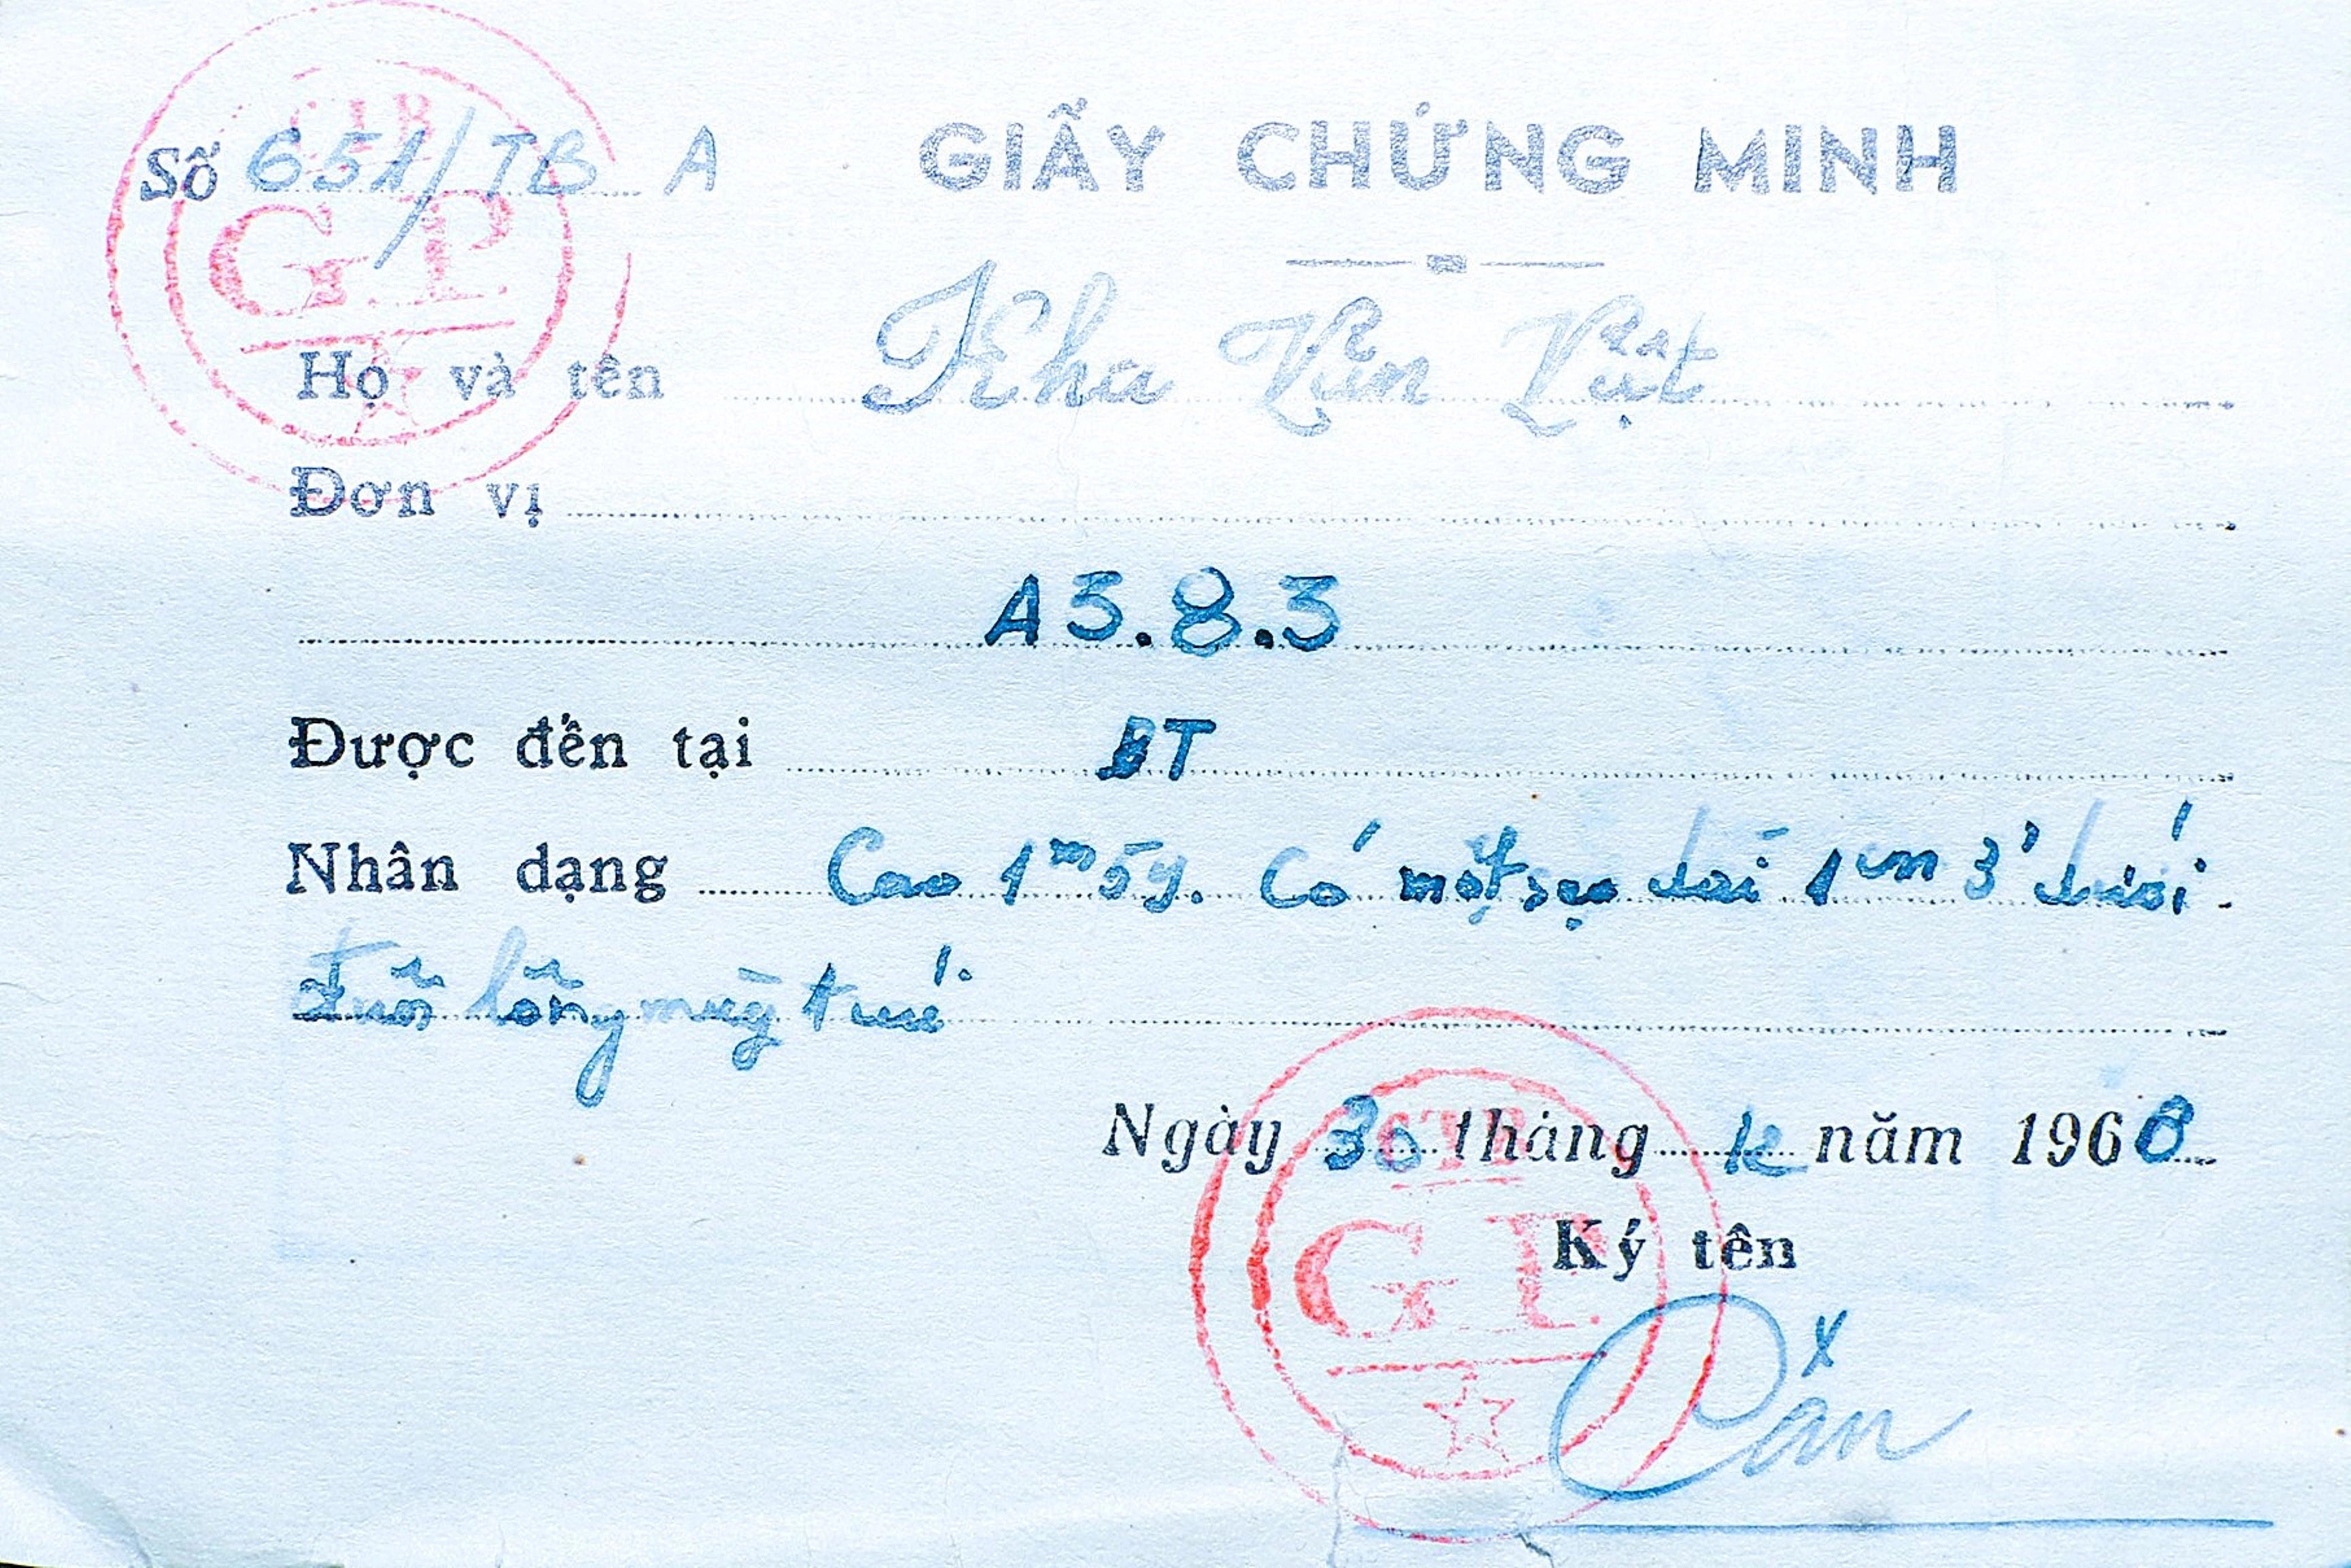 Số 651/TB A GIẤY CHỨNG MINH
Họ và tên Khu Văn Vật
Đơn vị
A3.8.3
Được đến tại BT
Nhân dạng Cao 1m59. Có một sẹo dài 1cm 3' dưới
đuôi lông mày trái.
Ngày 30 tháng 12 năm 1968
Ký tên
G.P.
G.P.